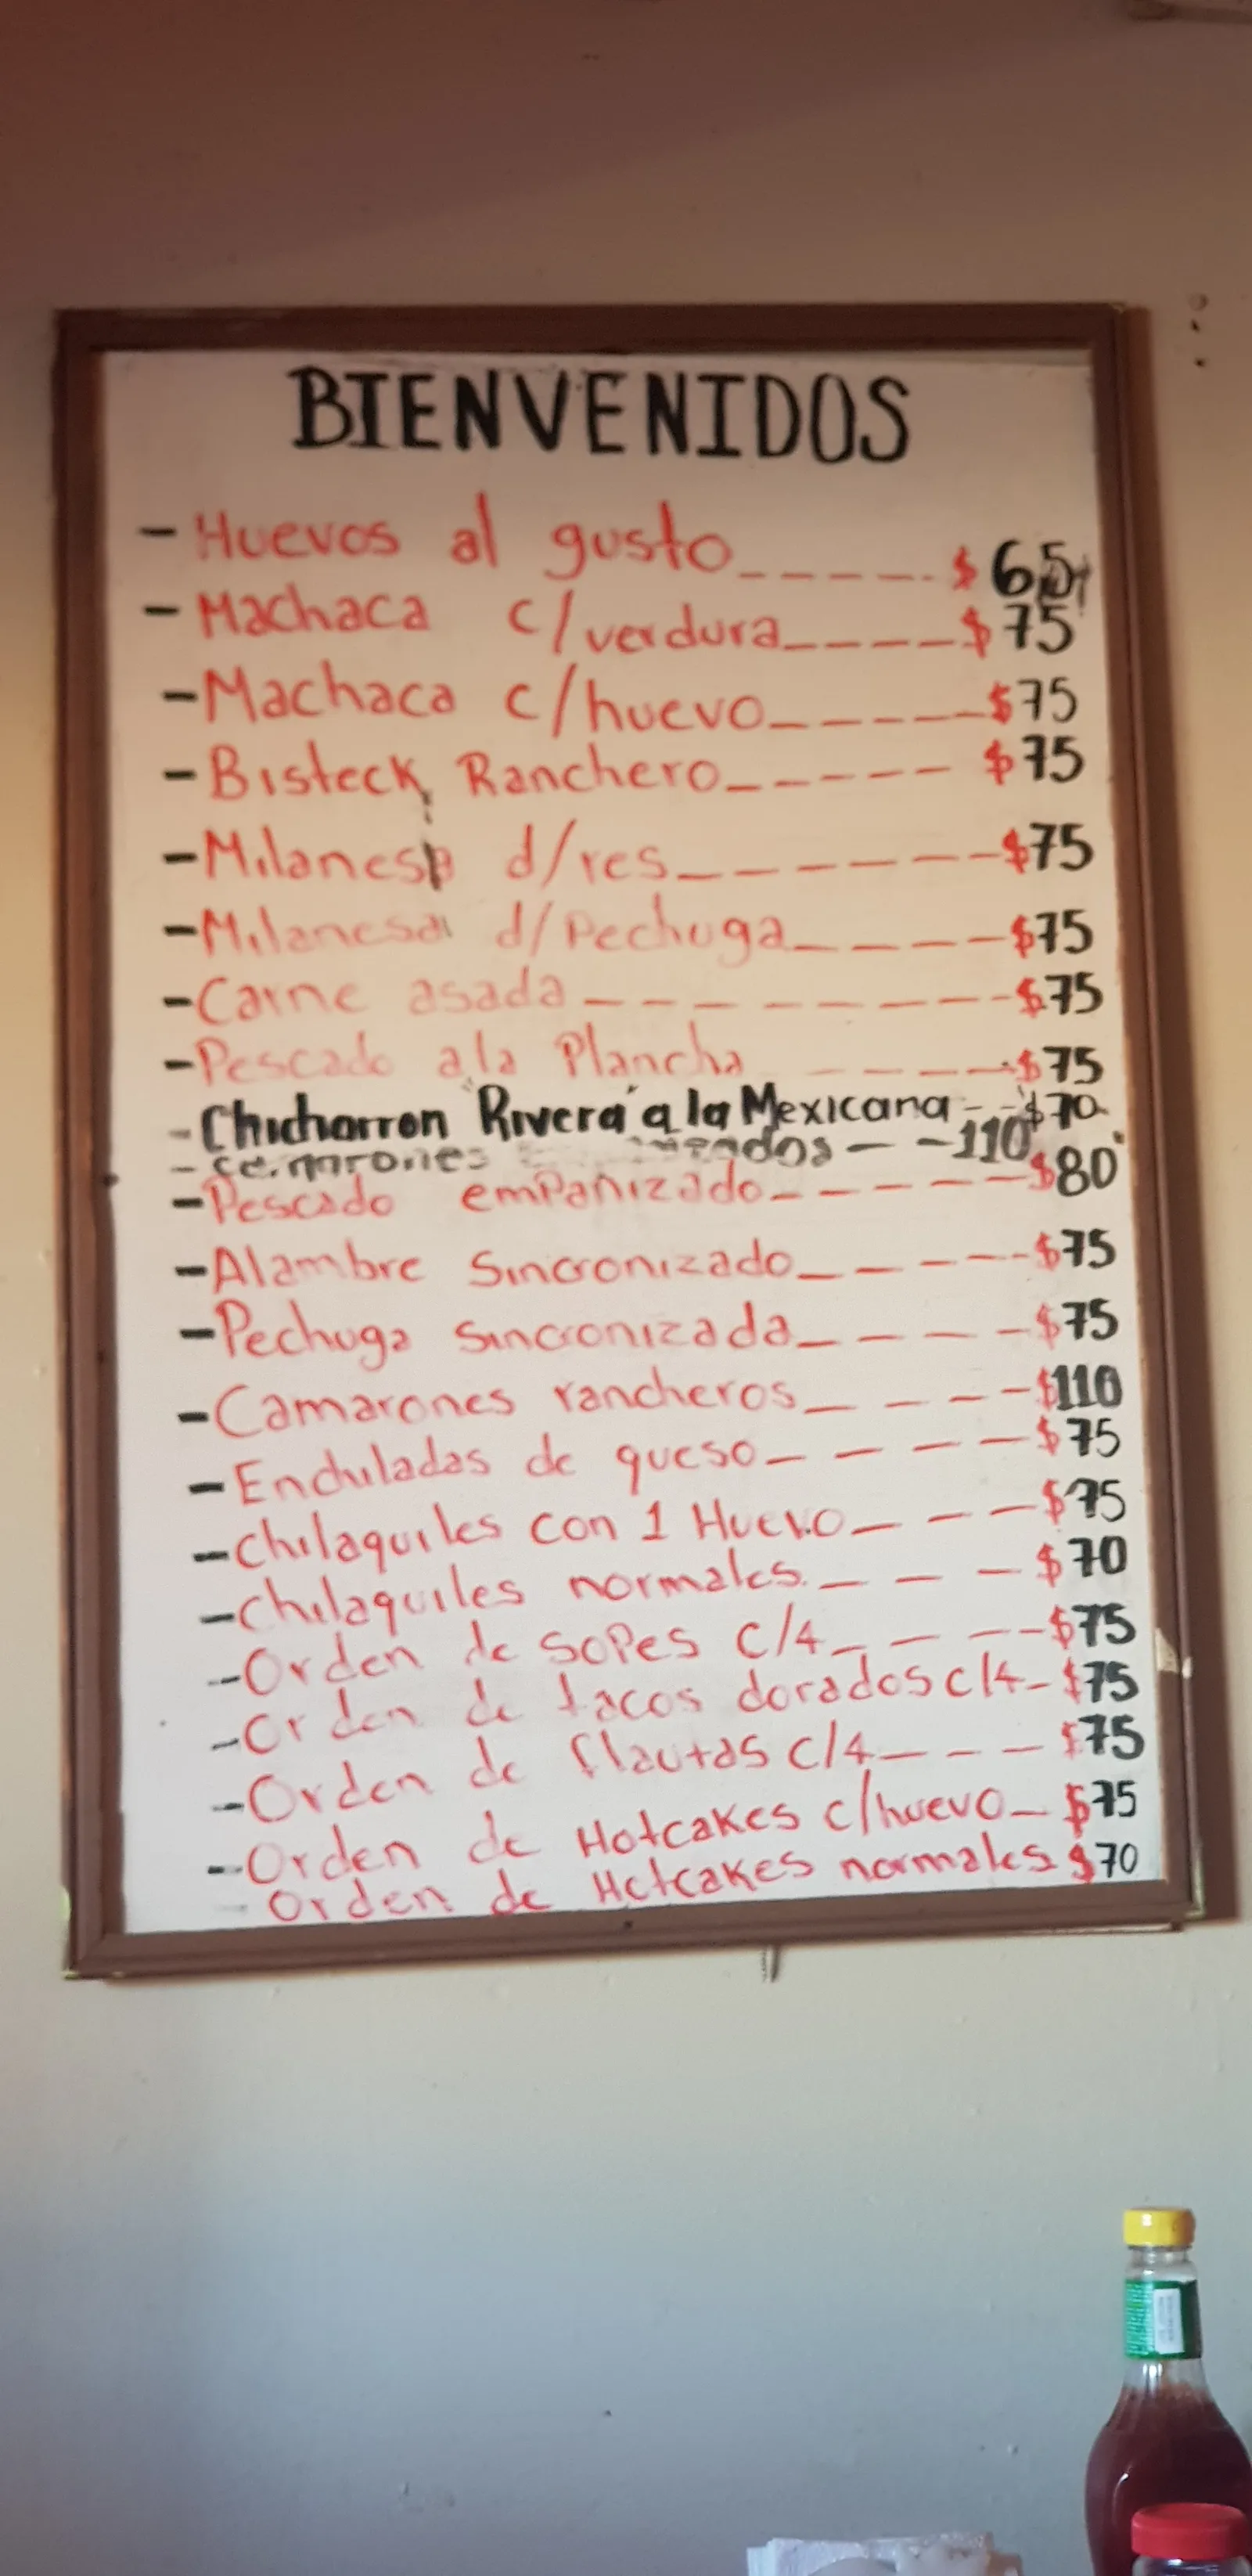 BIENVENIDOS
- Huevos al gusto_____$ 65
- Machaca c/verdura____$ 75
- Machaca c/huevo_____$75
- Bisteck Ranchero_____ $75
- Milanesa d/res_______$75
- Milanesa d/Pechuga____$75
- Carne asada________$75
- Pescado a la Plancha ____$75
- Chicharron "Rivera" a la Mexicana--$70
- camarones — -110
- Pescado empanizado_____$80
- Alambre Sincronizado____$75
- Pechuga Sincronizada____$75
- Camarones rancheros____$110
- Enchiladas de queso____$75
- Chilaquiles con 1 Huevo___$75
- Chilaquiles normales___$70
- Orden de Sopes c/4____$75
- Orden de tacos dorados c/4-$75
- Orden de flautas c/4___$75
- Orden de Hotcakes c/huevo_$75
- Orden de Hotcakes normales $70